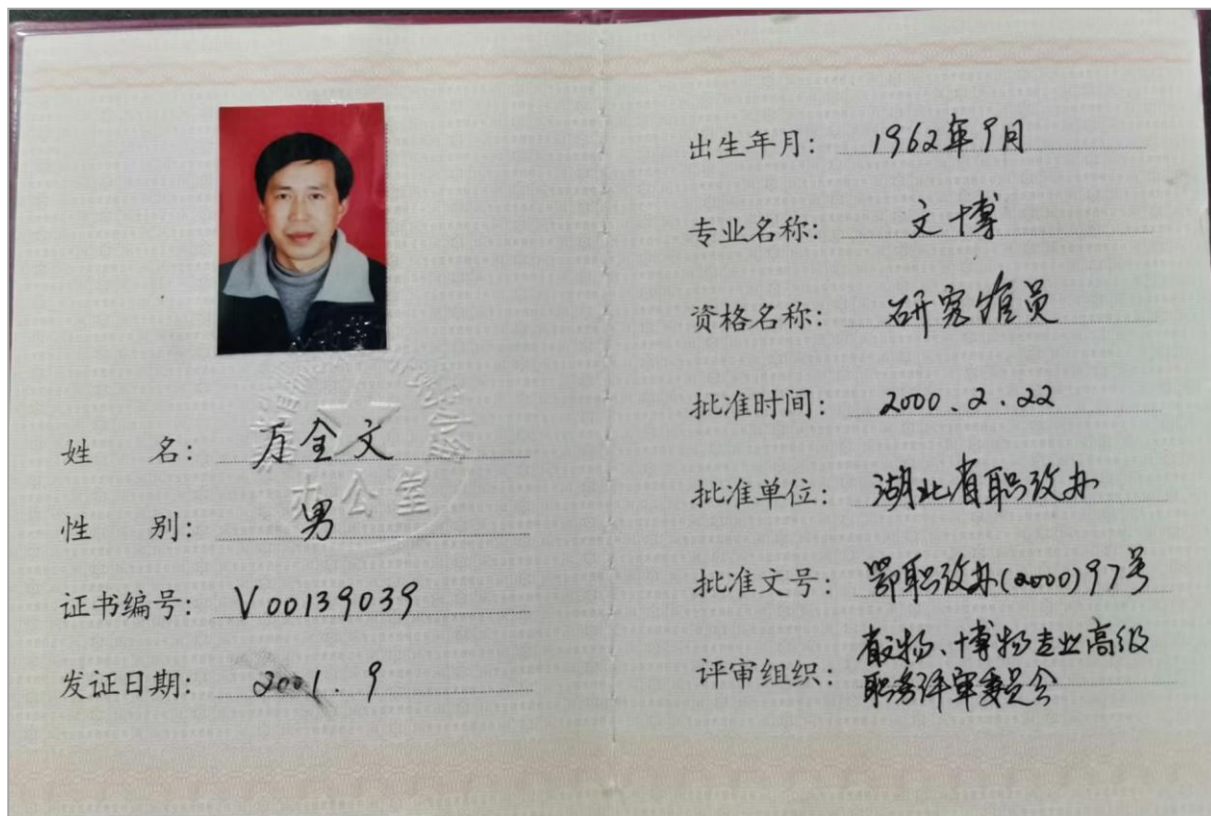 姓 名: 万全文
性 别: 男
证书编号: V00139039
发证日期: 2001.9
办公室
出生年月: 1962年9月
专业名称: 文博
资格名称: 研究馆员
批准时间: 2000.2.22
批准单位: 湖北省职改办
批准文号: 鄂职改办(2000)97号
评审组织: 省文物、博物专业高级
职务评审委员会